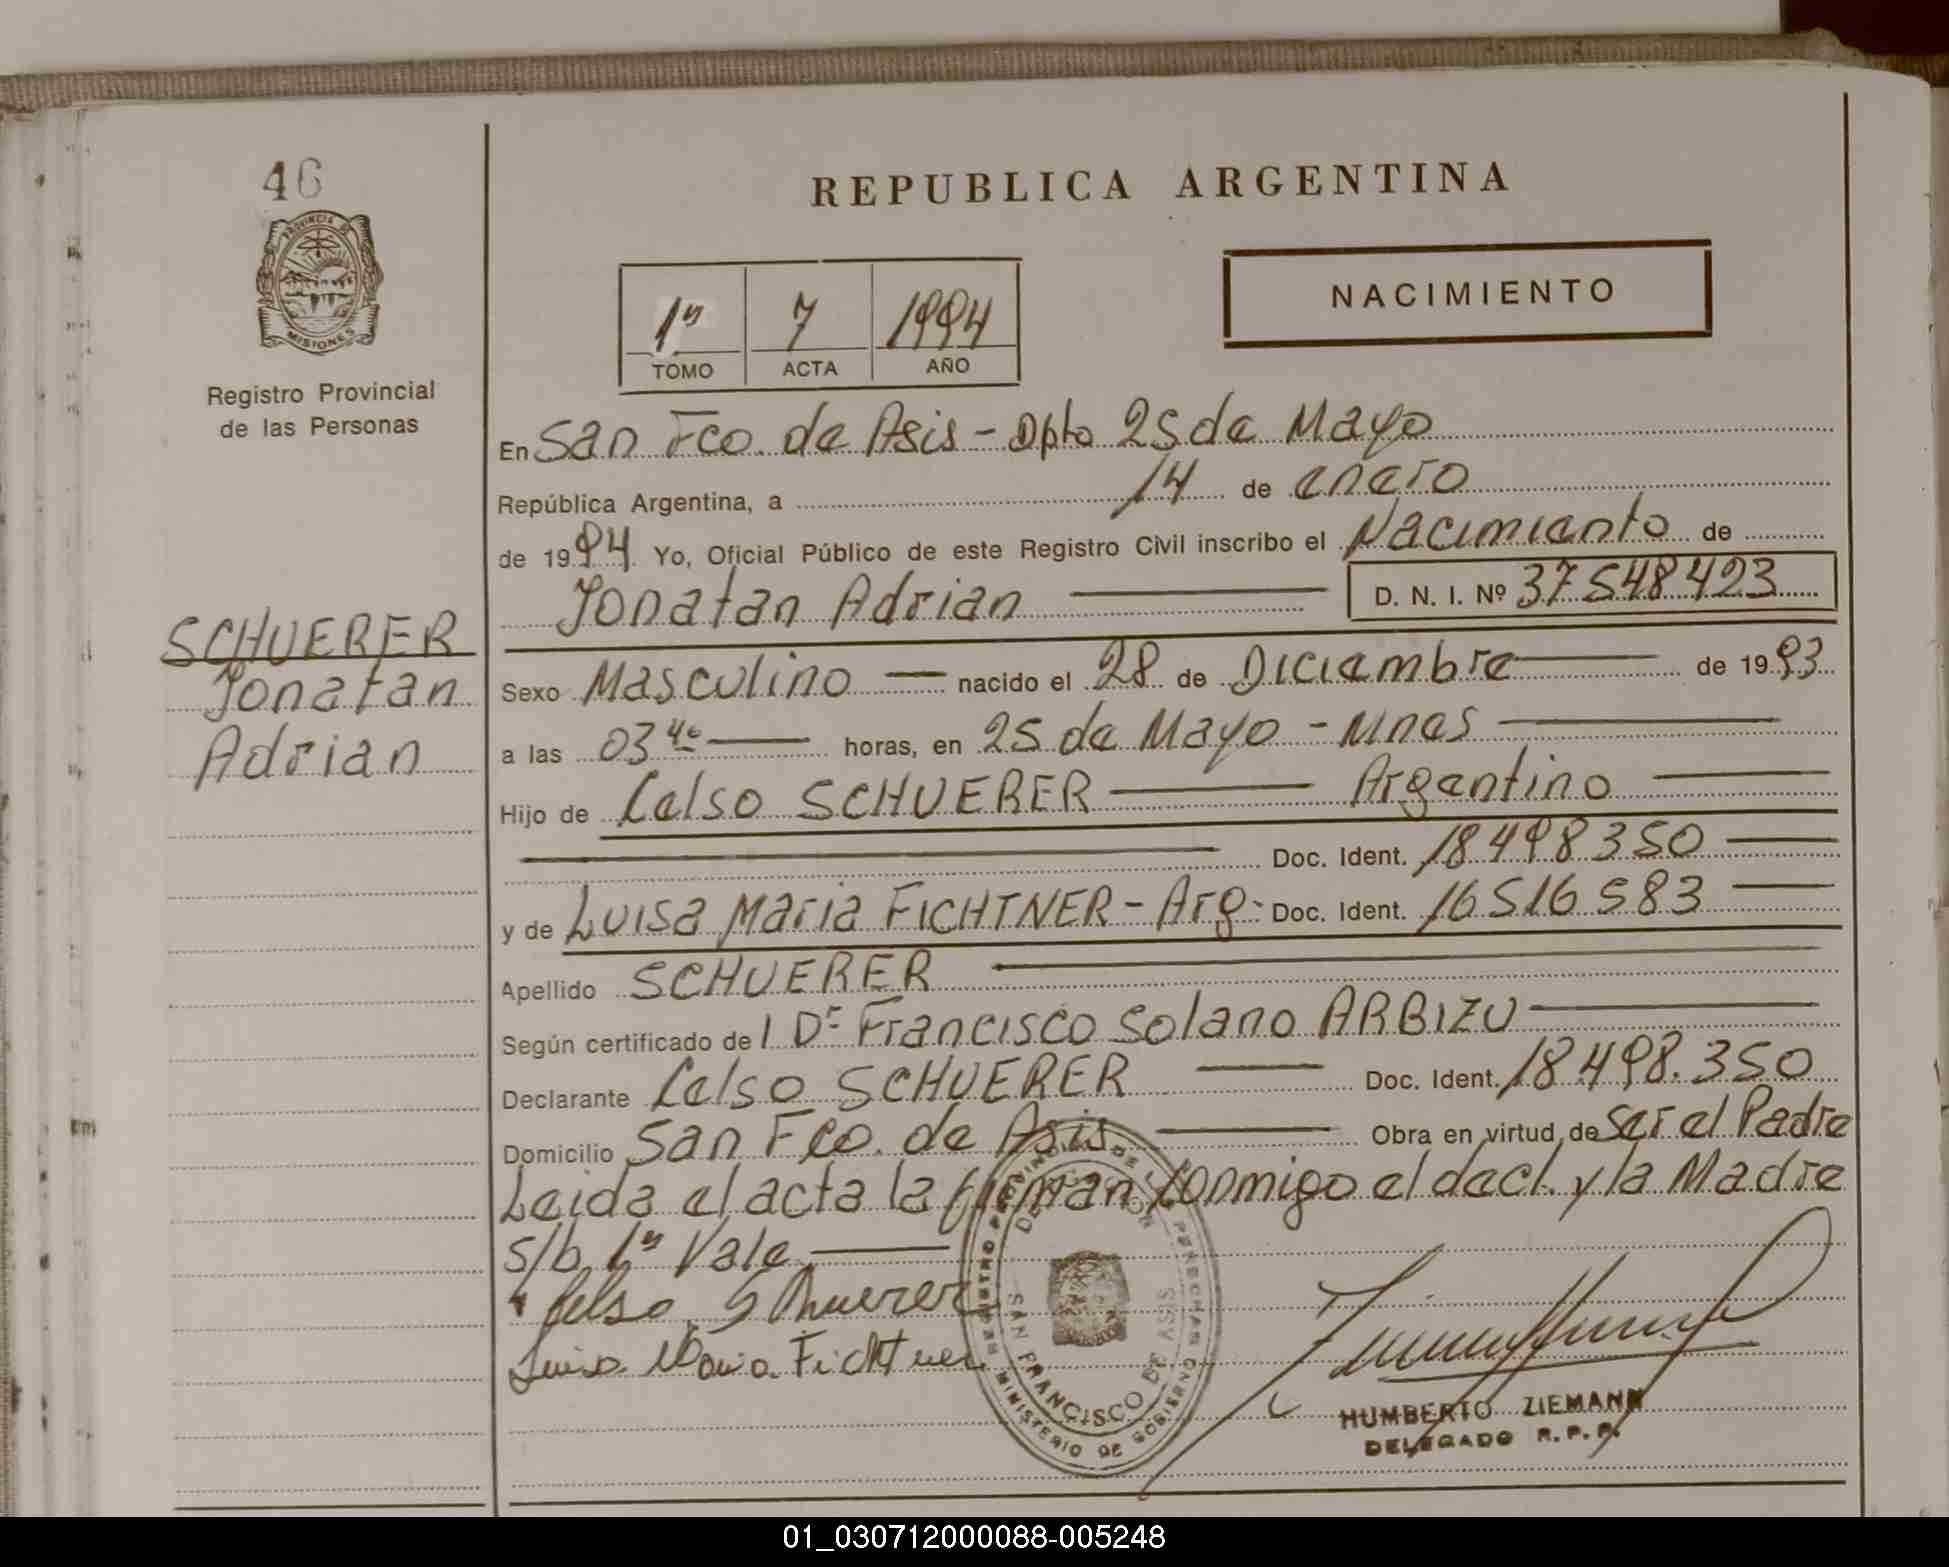 46
PROVINCIA DE
MISIONES
Registro Provincial
de las Personas
SCHUERER
Jonatan
Adrian
REPUBLICA ARGENTINA
1º 7 1994
TOMO ACTA AÑO
NACIMIENTO
En San Fco. de Asis - Dpto 25 de Mayo
República Argentina, a 14 de enero
de 1994 Yo, Oficial Público de este Registro Civil inscribo el Nacimiento de
Jonatan Adrian D. N. I. Nº 37548423
Sexo Masculino nacido el 28 de Diciembre de 1993
a las 03 40 horas, en 25 de Mayo - Mnes
Hijo de Celso SCHUERER Argentino
Doc. Ident. 18498350
y de Luisa Maria FICHTNER - Arg. Doc. Ident. 16516583
Apellido SCHUERER
Según certificado del Dr Francisco Solano ARBIZU
Declarante Celso SCHUERER Doc. Ident. 18.498.350
Domicilio San Fco. de Asis Obra en virtud de ser el Padre
Leida el acta la firman conmigo el decl. y la Madre
s/b 1º Vale
Celso Schuerer
Luisa Maria Fichtner
REGISTRO PROVINCIAL DE LAS PERSONAS
DELEGACION
SAN FRANCISCO DE ASIS
MINISTERIO DE GOBIERNO
HUMBERTO ZIEMANN
DELEGADO R.P.P.
01_030712000088-005248